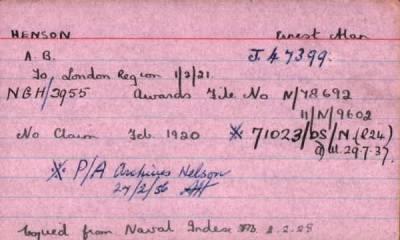 HENSON Ernest Alan
A.B. J.47399.
To London Region 1/2/21.
NBH/3955 Awards File No N/78692
11/N/9602
No Claim Feb. 1920 * 71023/DS/N.(l24)
d/d 29.7.37.
*: P/A Archives Nelson
24/2/56
Copied from Naval Index 2.2.28